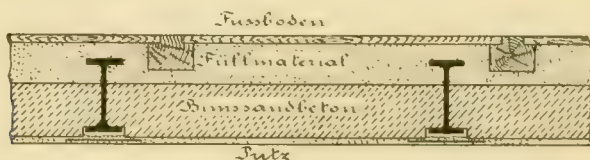 Fussboden
Füllmaterial
Bimssandbeton
Putz